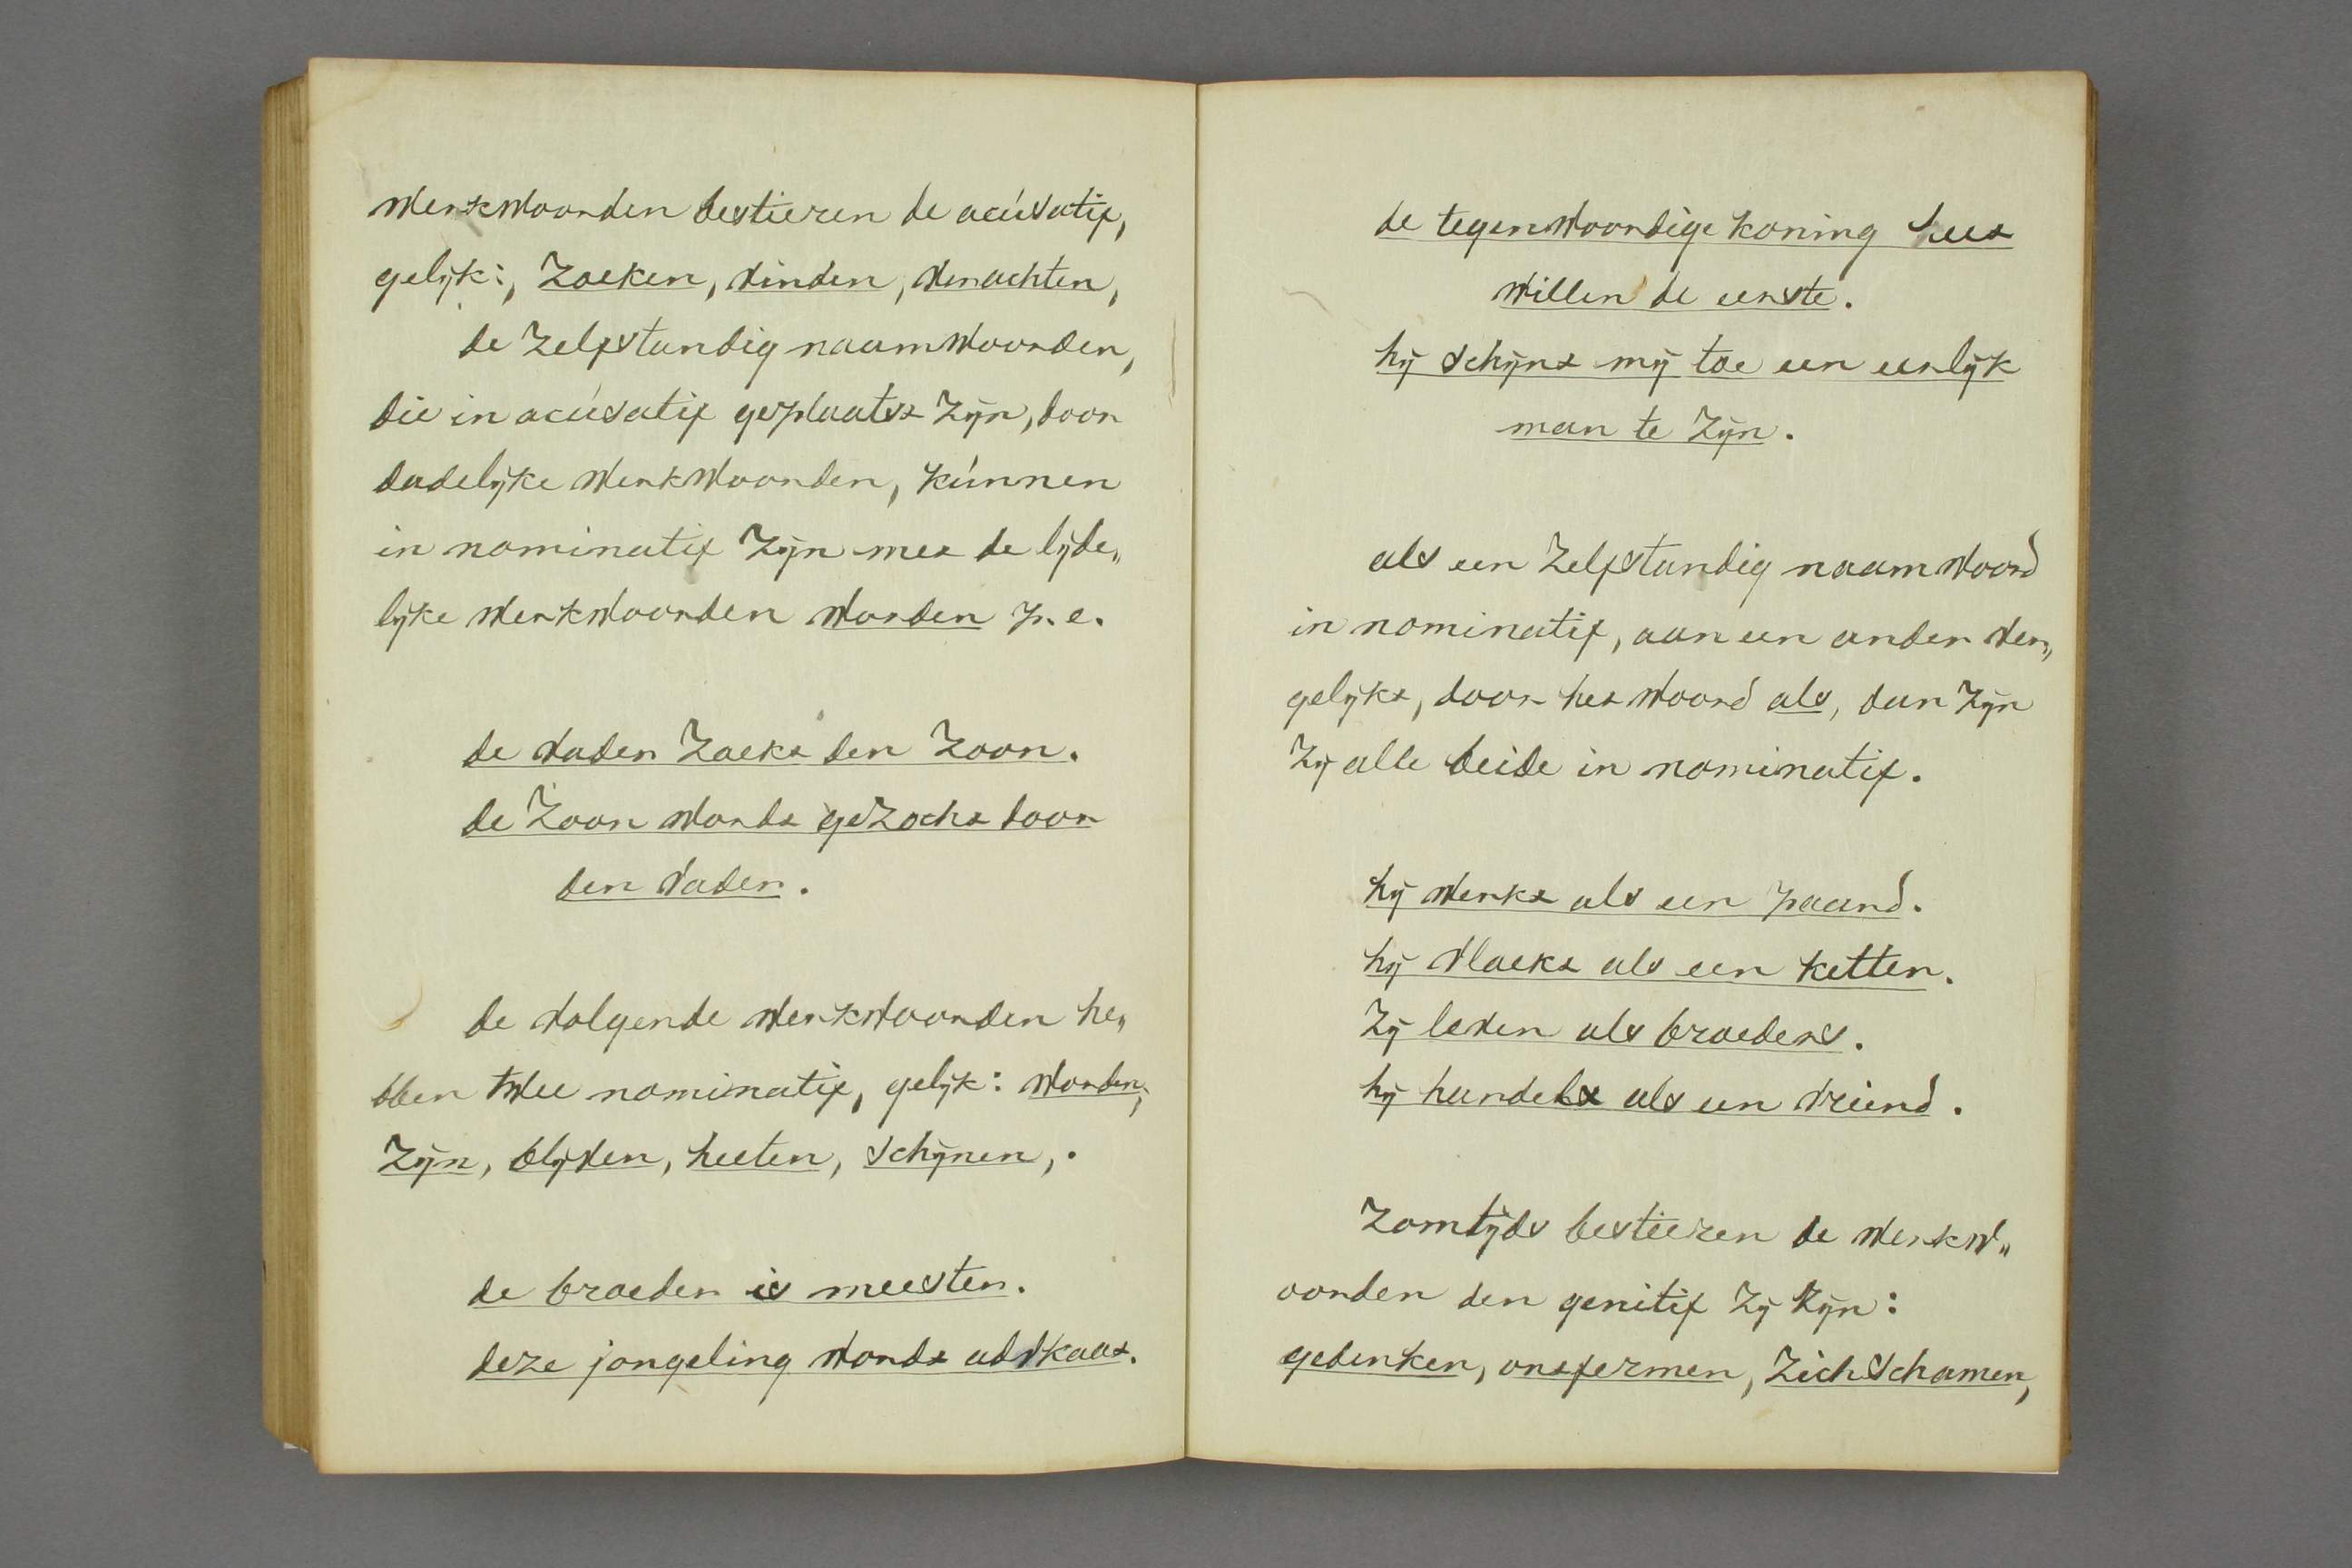 werkwoorden bestieren de acúsatif,
gelijk:, Zoeken, vinden, verachten,
de Zelfstandig naamwoorden,
die in acúsatif geplaatst Zijn, door
dadelijke werkwoorden, kúnnen
in nominatif Zijn met de lijde„
lijke werkwoorden worden p. e.
de vader Zoekt den Zoon.
de Zoon wordt geZocht door
den vader.
de volgende werkwoorden he„
bben twee nominatif, gelijk: worden,
Zijn, blijven, heeten, schijnen,.
de broeder is meester.
deze jongeling wordt advkaat.
de tegenwoordige koning heet
willem de eerste.
hij schijnt mij toe een eerlijk
man te Zijn.
als een Zelfstandig naamwoord
in nominatif, aan een ander ver„
gelijkt, door het woord als, dan Zijn
Zij alle beide in nominatif.
hij werkt als een paard.
hij vloekt als een ketter.
Zij leven als broeders.
hij handelt als een vriend.
Zomtijds bestieren de werkw„
oorden den genitif Zij Zijn:
gedenken, ontfermen, Zich schamen,